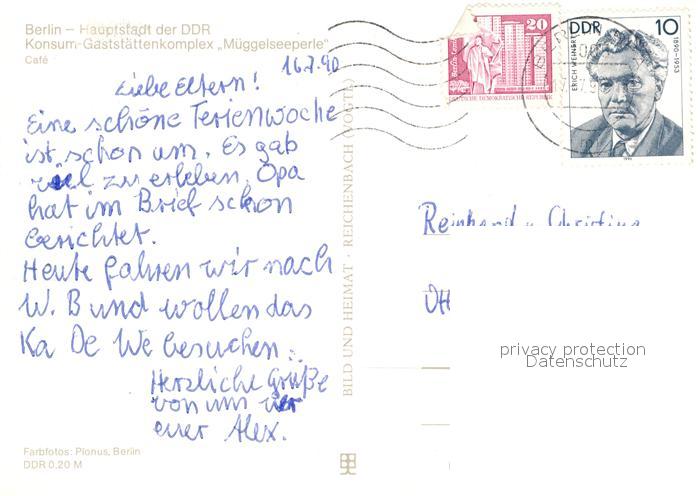 Berlin – Hauptstadt der DDR
Konsum-Gaststättenkomplex „Müggelseeperle"
Café
16.7.90
Liebe Eltern!
Eine schöne Ferienwoche
ist schon um. Es gab
viel zu erleben. Opa
hat im Brief schon
berichtet.
Heute fahren wir nach
W. B und wollen das
Ka De We besuchen.
Herzliche Grüße
von uns vier
euer Alex.
Farbfotos: Plonus, Berlin
DDR 0,20 M
BILD UND HEIMAT · REICHENBACH (VOGTL)
20
DEUTSCHE DEMOKRATISCHE REPUBLIK
DDR 10
ERICH WEINERT
1890–1953
1990
Reinhard u. Christina
privacy protection
Datenschutz